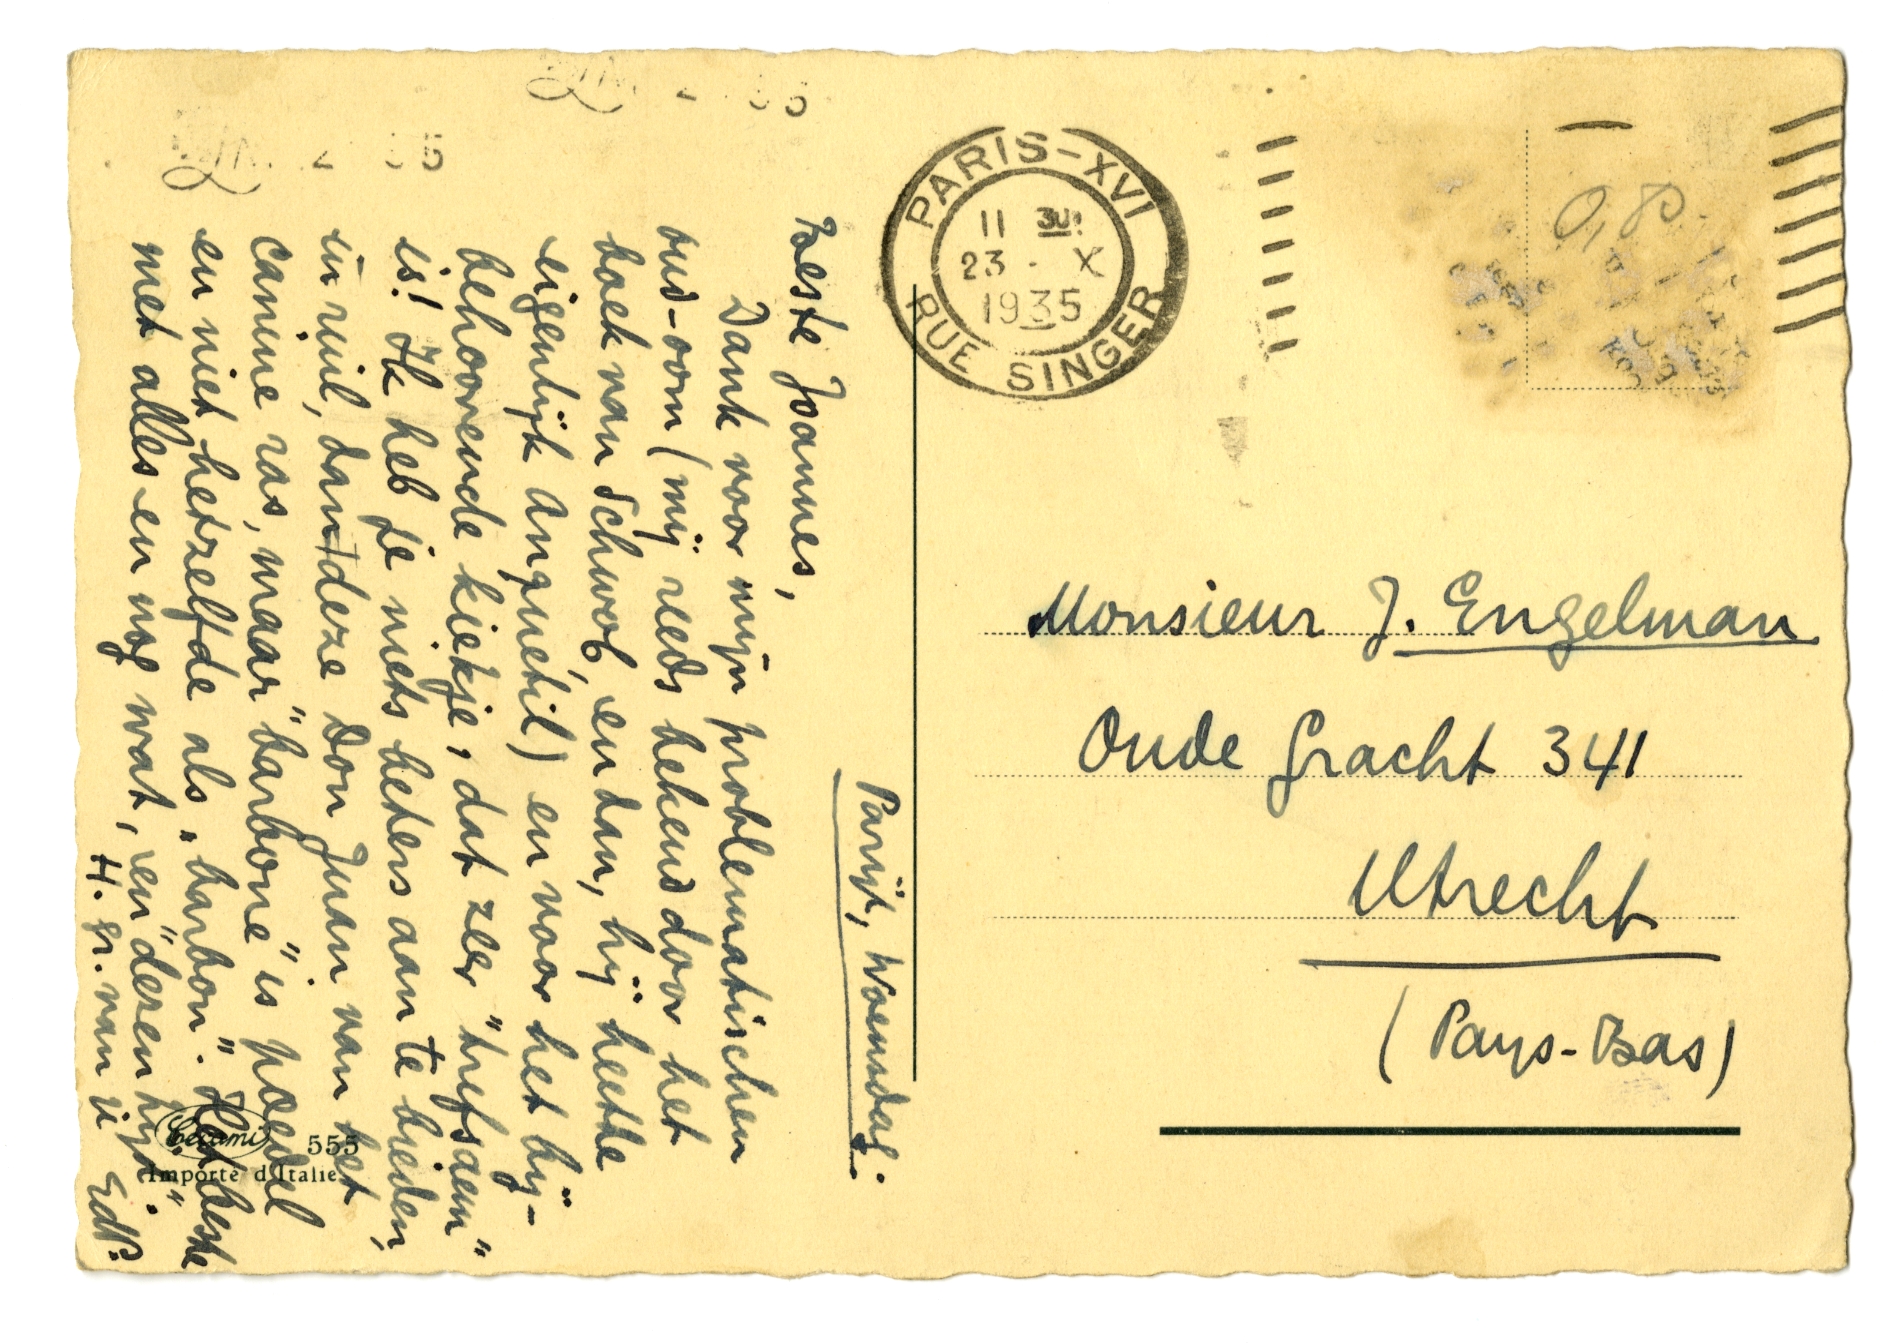 Parijs, Woensdag.
Beste Joannes,
Dank voor mijn problematischen
oud-oom (mij reeds bekend door het
boek van Schwob, en dan, hij heette
eigenlijk Anquetil) en voor het bij-
behoorende kiekje, dat zeer "hefsaem"
is! Ik heb je niets beters aan te bieden,
in ruil, dan deze Don Juan van het
canine ras, maar "barbone" is poedel
en niet hetzelfde als "barbon". Het beste
met alles en nog wat, en "desen hijl".
H. gr. van je EdP.
PARIS-XVI
11 30
23 - X
1935
RUE SINGER
0,80.
Monsieur J. Engelman
Oude Gracht 341
Utrecht
(Pays-Bas)
Cecami 555
Importé d'Italie